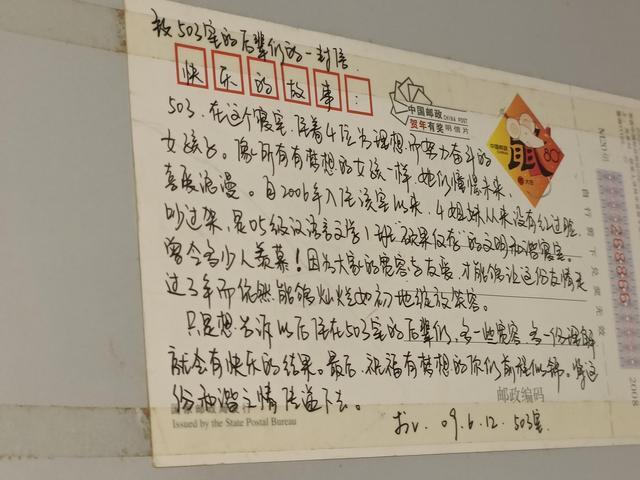 致503室的后辈们的一封信.
快乐的故事:
中国邮政
CHINA POST
贺年有奖明信片
中国邮政
80
503,在这个寝室,住着4位为理想而努力奋斗的
女孩子。像所有有梦想的女孩一样,她们憧憬未来
喜爱浪漫。自2006年入住该室以来,4姐妹从来没有红过脸,
吵过架,是05级汉语言文学1班硕果仅存的文明和谐寝室。
曾令多少人羡慕!因为大家的宽容与友爱,才能够让这份友情走
过3年而依然能够灿烂如初地绽放笑容。
只是想告诉以后住在503室的后辈们,多一些宽容,多一份理解
就会有快乐的结果。最后,祝福有梦想的你们前程似锦。将这
份和谐之情传递下去。
09.6.12. 503室.
邮政编码
Issued by the State Postal Bureau
268866
2008